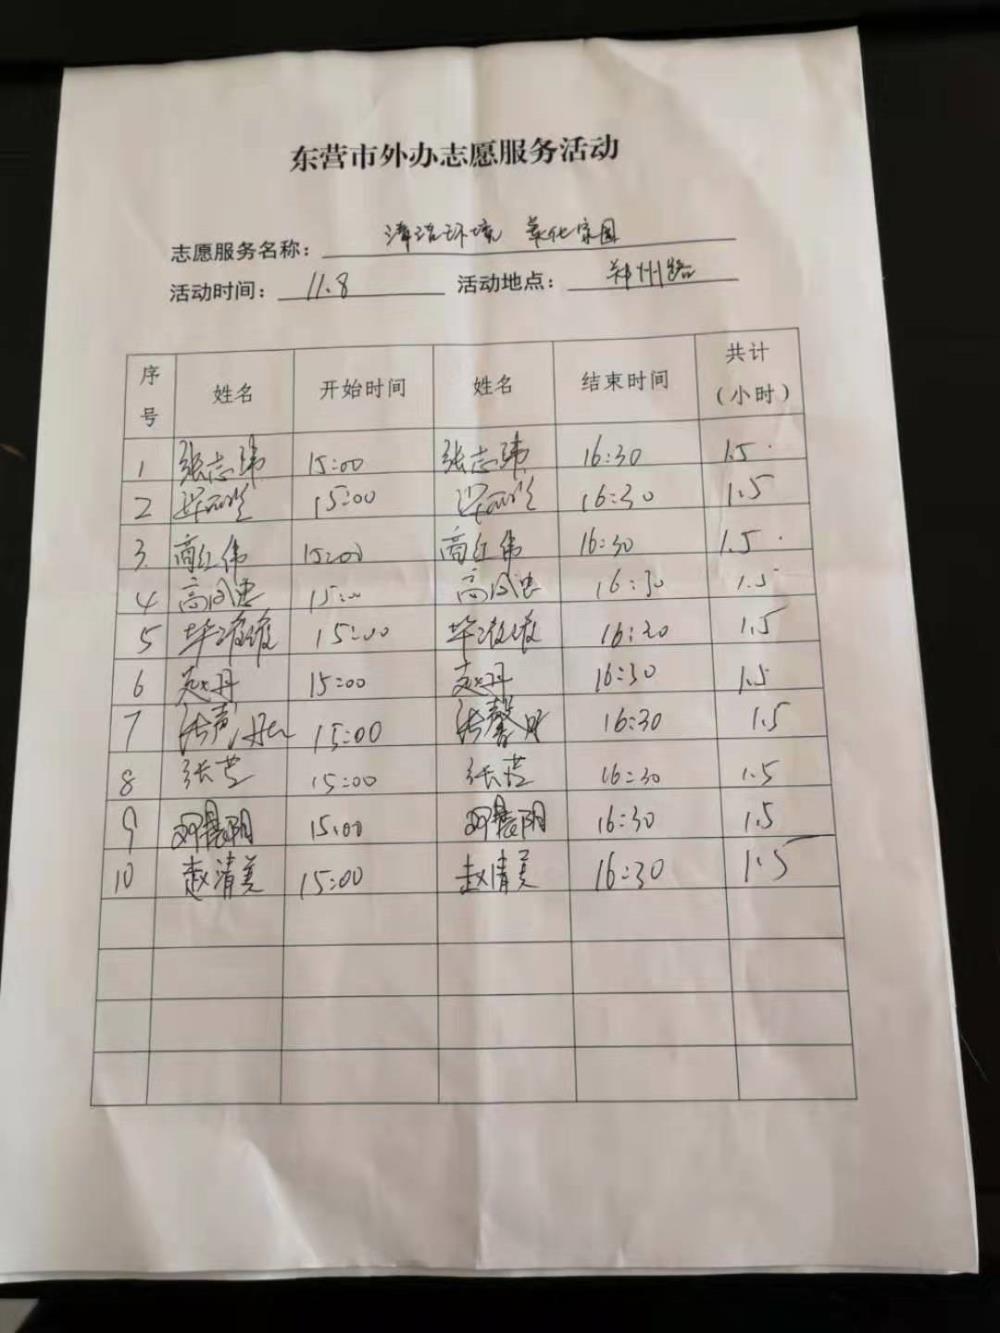 东营市外办志愿服务活动
志愿服务名称： 清洁环境 美化家园
活动时间： 11.8 活动地点： 郑州路
序号 姓名 开始时间 姓名 结束时间 共计（小时）
1 张志玮 15:00 张志玮 16:30 1.5
2 15:00 16:30 1.5
3 商红伟 15:00 商红伟 16:30 1.5
4 高风忠 15:00 高风忠 16:30 1.5
5 毕海维 15:00 毕海维 16:30 1.5
6 赵丹 15:00 赵丹 16:30 1.5
7 15:00 16:30 1.5
8 张芸 15:00 张芸 16:30 1.5
9 邓晨阳 15:00 邓晨阳 16:30 1.5
10 赵清美 15:00 赵清美 16:30 1.5